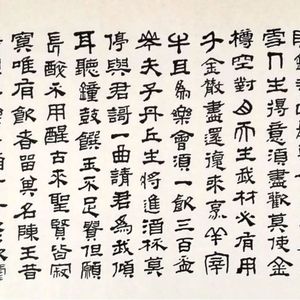 雪人生得意須盡歡莫使金
樽空對月天生我材必有用
千金散盡還復來烹羊宰
牛且為樂會須一飲三百盃
岑夫子丹丘生將進酒杯莫
停與君哥一曲請君為我傾
耳聽鐘鼓饌玉不足貴但願
長醉不用醒古來聖賢皆寂
寞唯有飲者留其名陳王昔